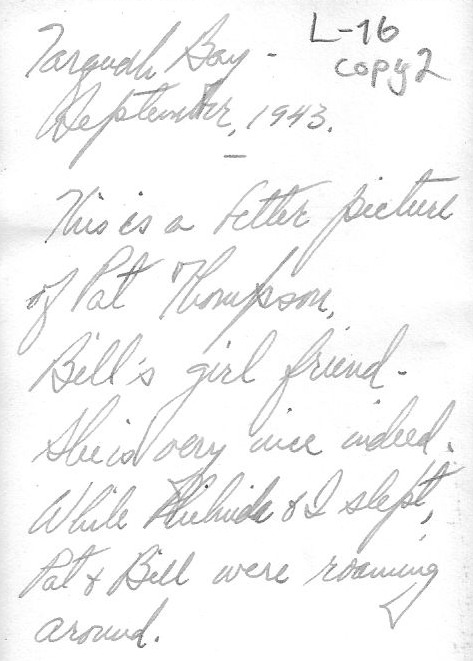 L-16
copy 2
Bay -
September, 1943.
This is a better picture
of Pat Thompson,
Bill's girl friend -
She is very nice indeed.
While & I slept,
Pat & Bill were roaming
around.